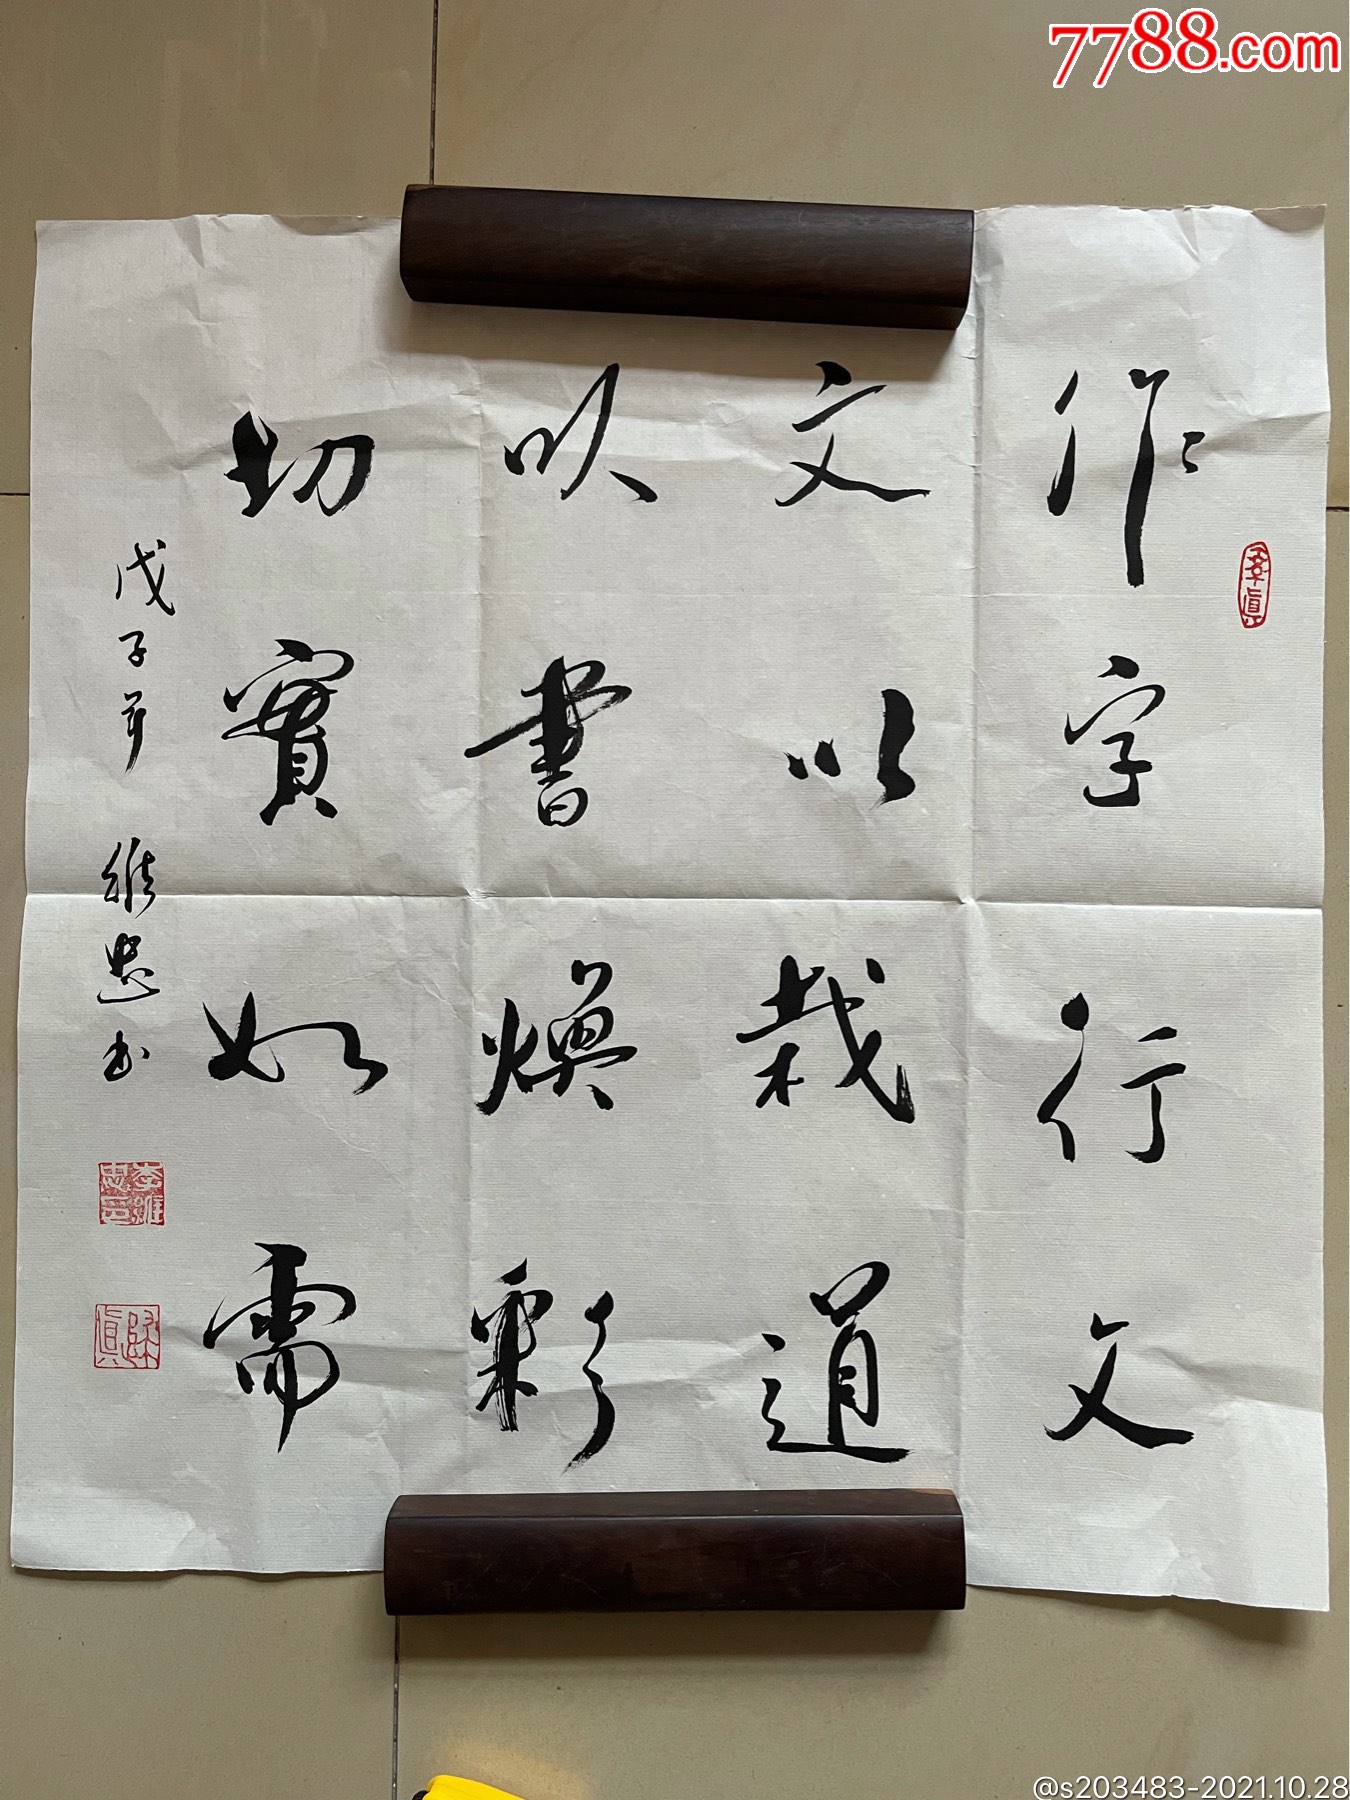 7788.com
作字行文
文以載道
以書煥彩
切實如需
戊子年 維忠书
李維忠印
@s203483-2021.10.28